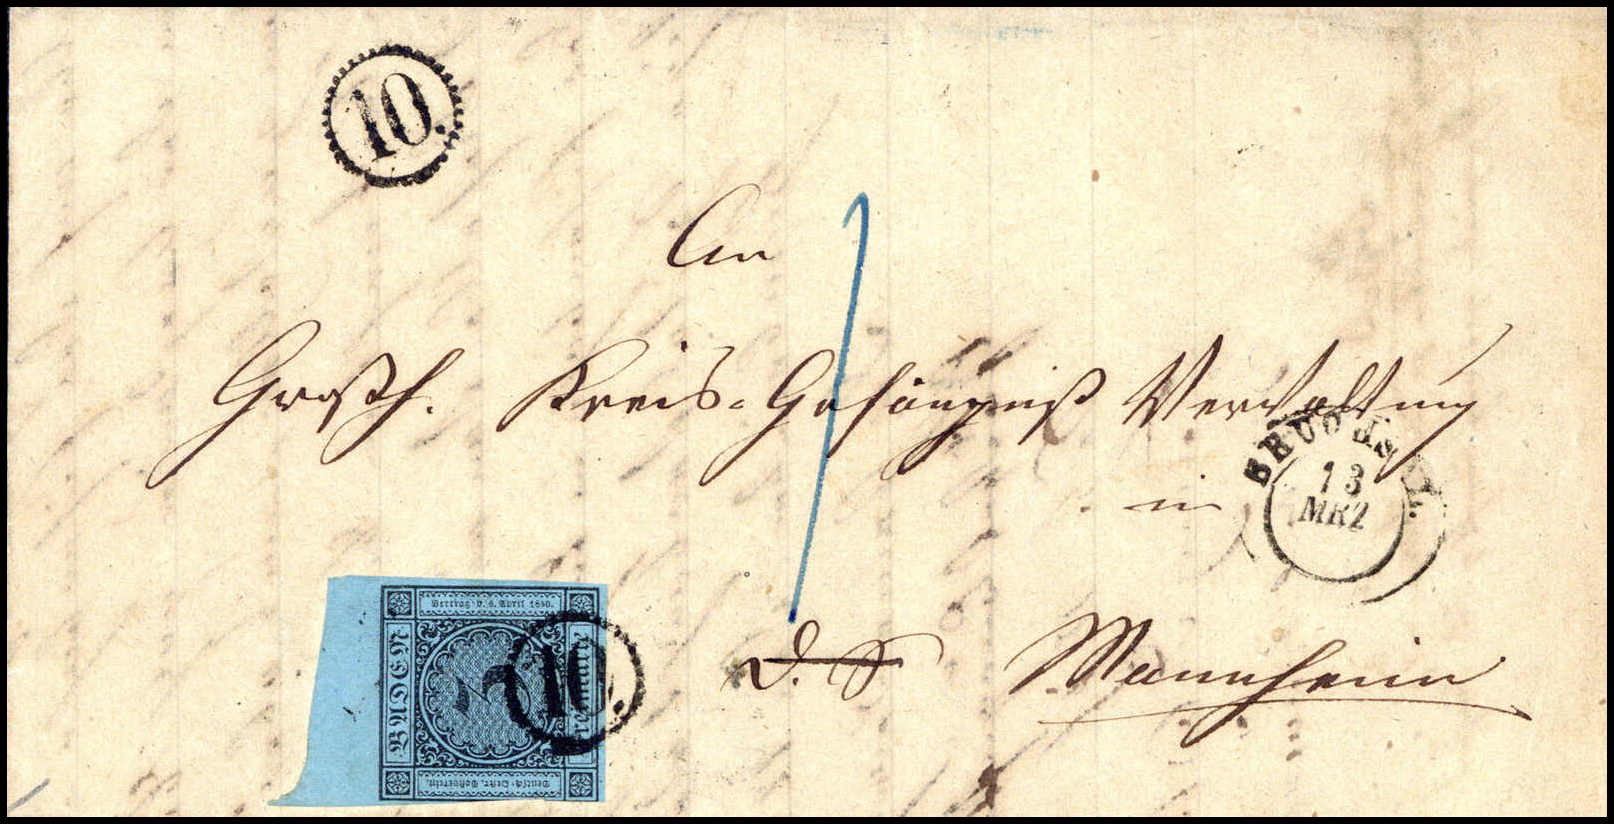 10.
An
Großh. Kreis-Gefängniß Verwaltung
in
BRUCHSAL.
13
MRZ
D. S
Mannheim
Vertrag v. 6. April 1850.
BADEN
Freimarke
3
10.
Deutsch-Oestr. Postverein.